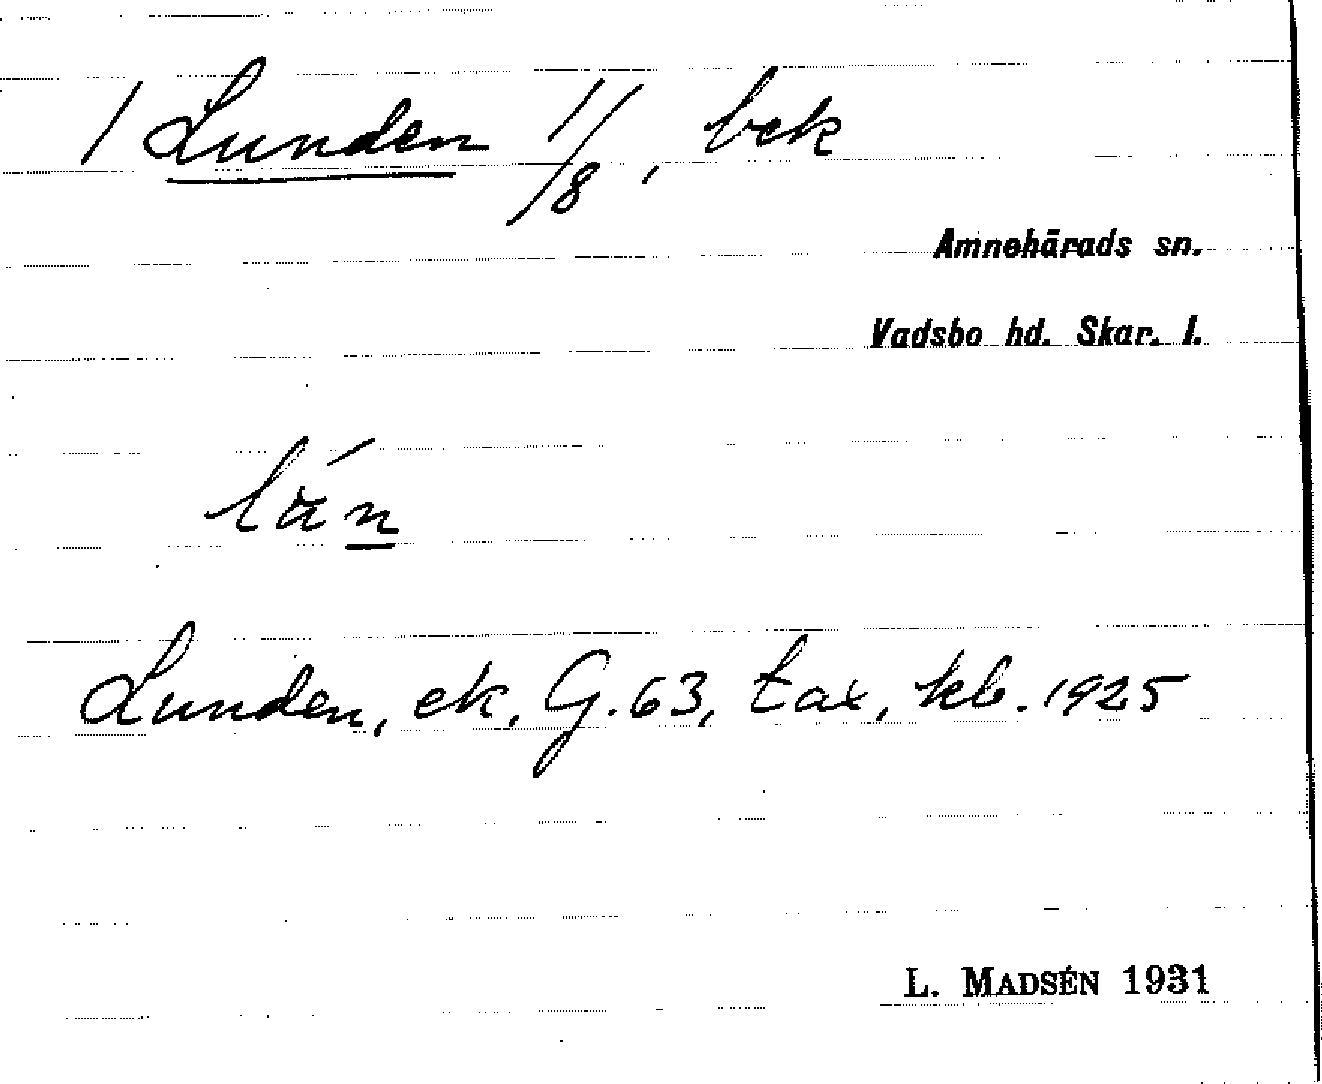 / Lunden 1/8, bek
Amnehärads sn.
Vadsbo hd. Skar. l.
Lunden, ek. G. 63, tax, kb. 1925
L. MADSÉN 1931